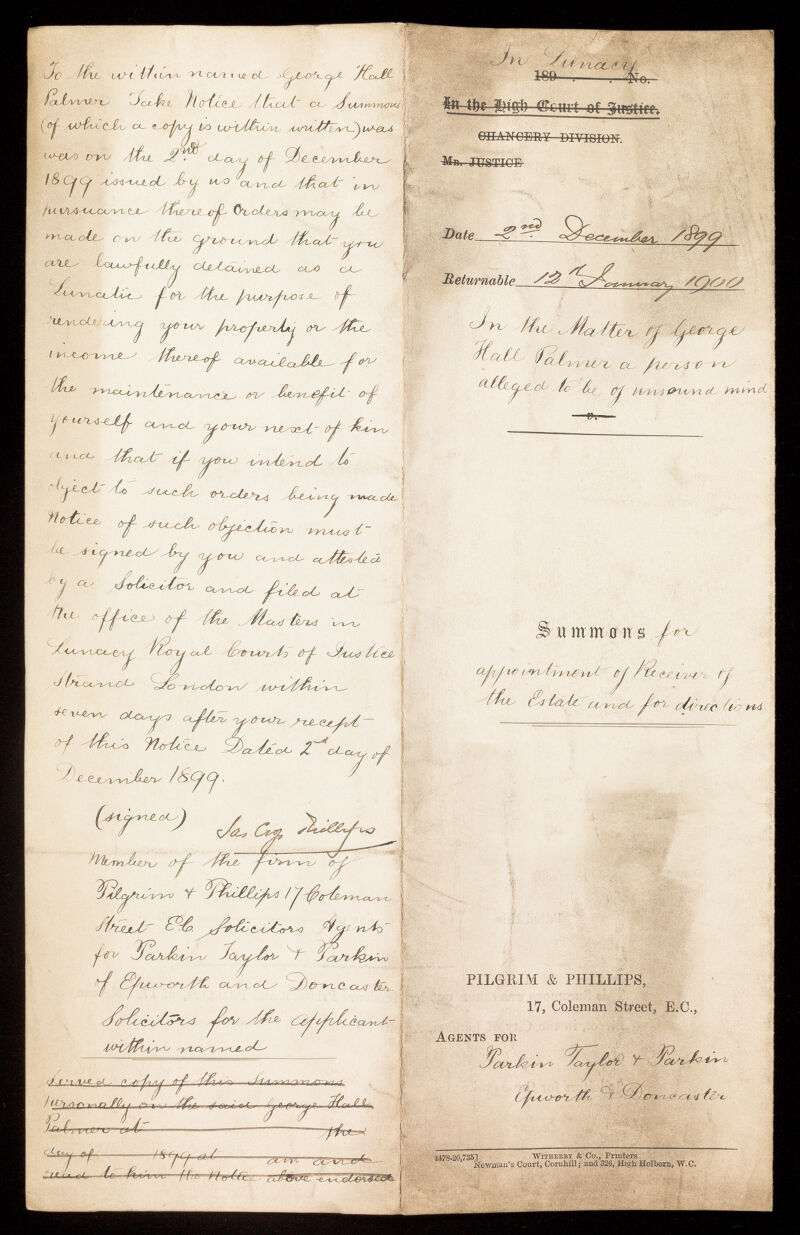 To the within named George Hall
Palmer Take Notice that a Summons
(of which a copy is within written) was
was on the 2nd day of December
1899 issued by us and that in
pursuance thereof Orders may be
made on the ground that you
are lawfully detained as a
Lunatic for the purpose of
rendering your property or the
income thereof available for
the maintenance or benefit of
yourself and your next of kin
and that if you intend to
object to such orders being made
Notice of such objection must
be signed by you and attested
by a Solicitor and filed at
the office of the Masters in
Lunacy Royal Courts of Justice
Strand London within
seven days after your receipt
of this Notice Dated 2nd day of
December 1899.
(signed) Jas Phillips
Member of the firm of
Pilgrim & Phillips 17 Coleman
Street E.C. Solicitors Agents
for Parkin Taylor & Parkin
of Epworth and Doncaster
Solicitors for the applicant
within named
Served copy of this Summons
personally on the said George Hall
Palmer at the
day of 1899 at am and
read to him the Notice above endorsed
In Lunacy
189 . . No.
In the High Court of Justice.
CHANCERY DIVISION.
Mr. JUSTICE
Date 2nd December 1899
Returnable 12th January 1900
In the Matter of George
Hall Palmer a person
alleged to be of unsound mind
v.
Summons for
appointment of Receiver of
the Estate and for directions
PILGRIM & PHILLIPS,
17, Coleman Street, E.C.,
AGENTS FOR
Parkin Taylor & Parkin
Epworth & Doncaster
4478-20,735] WITHERBY & Co., Printers
Newman's Court, Cornhill; and 326, High Holborn, W.C.